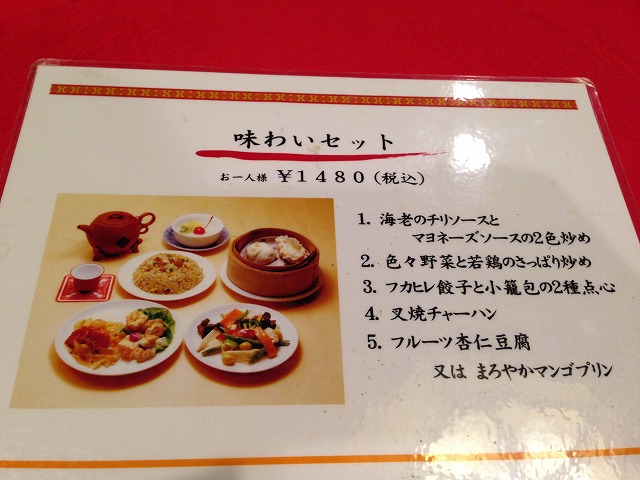 味わいセット
お一人様 ￥1480(税込)
1. 海老のチリソースと
マヨネーズソースの2色炒め
2. 色々野菜と若鶏のさっぱり炒め
3. フカヒレ餃子と小籠包の2種点心
4. 叉焼チャーハン
5. フルーツ杏仁豆腐
又は まろやかマンゴプリン